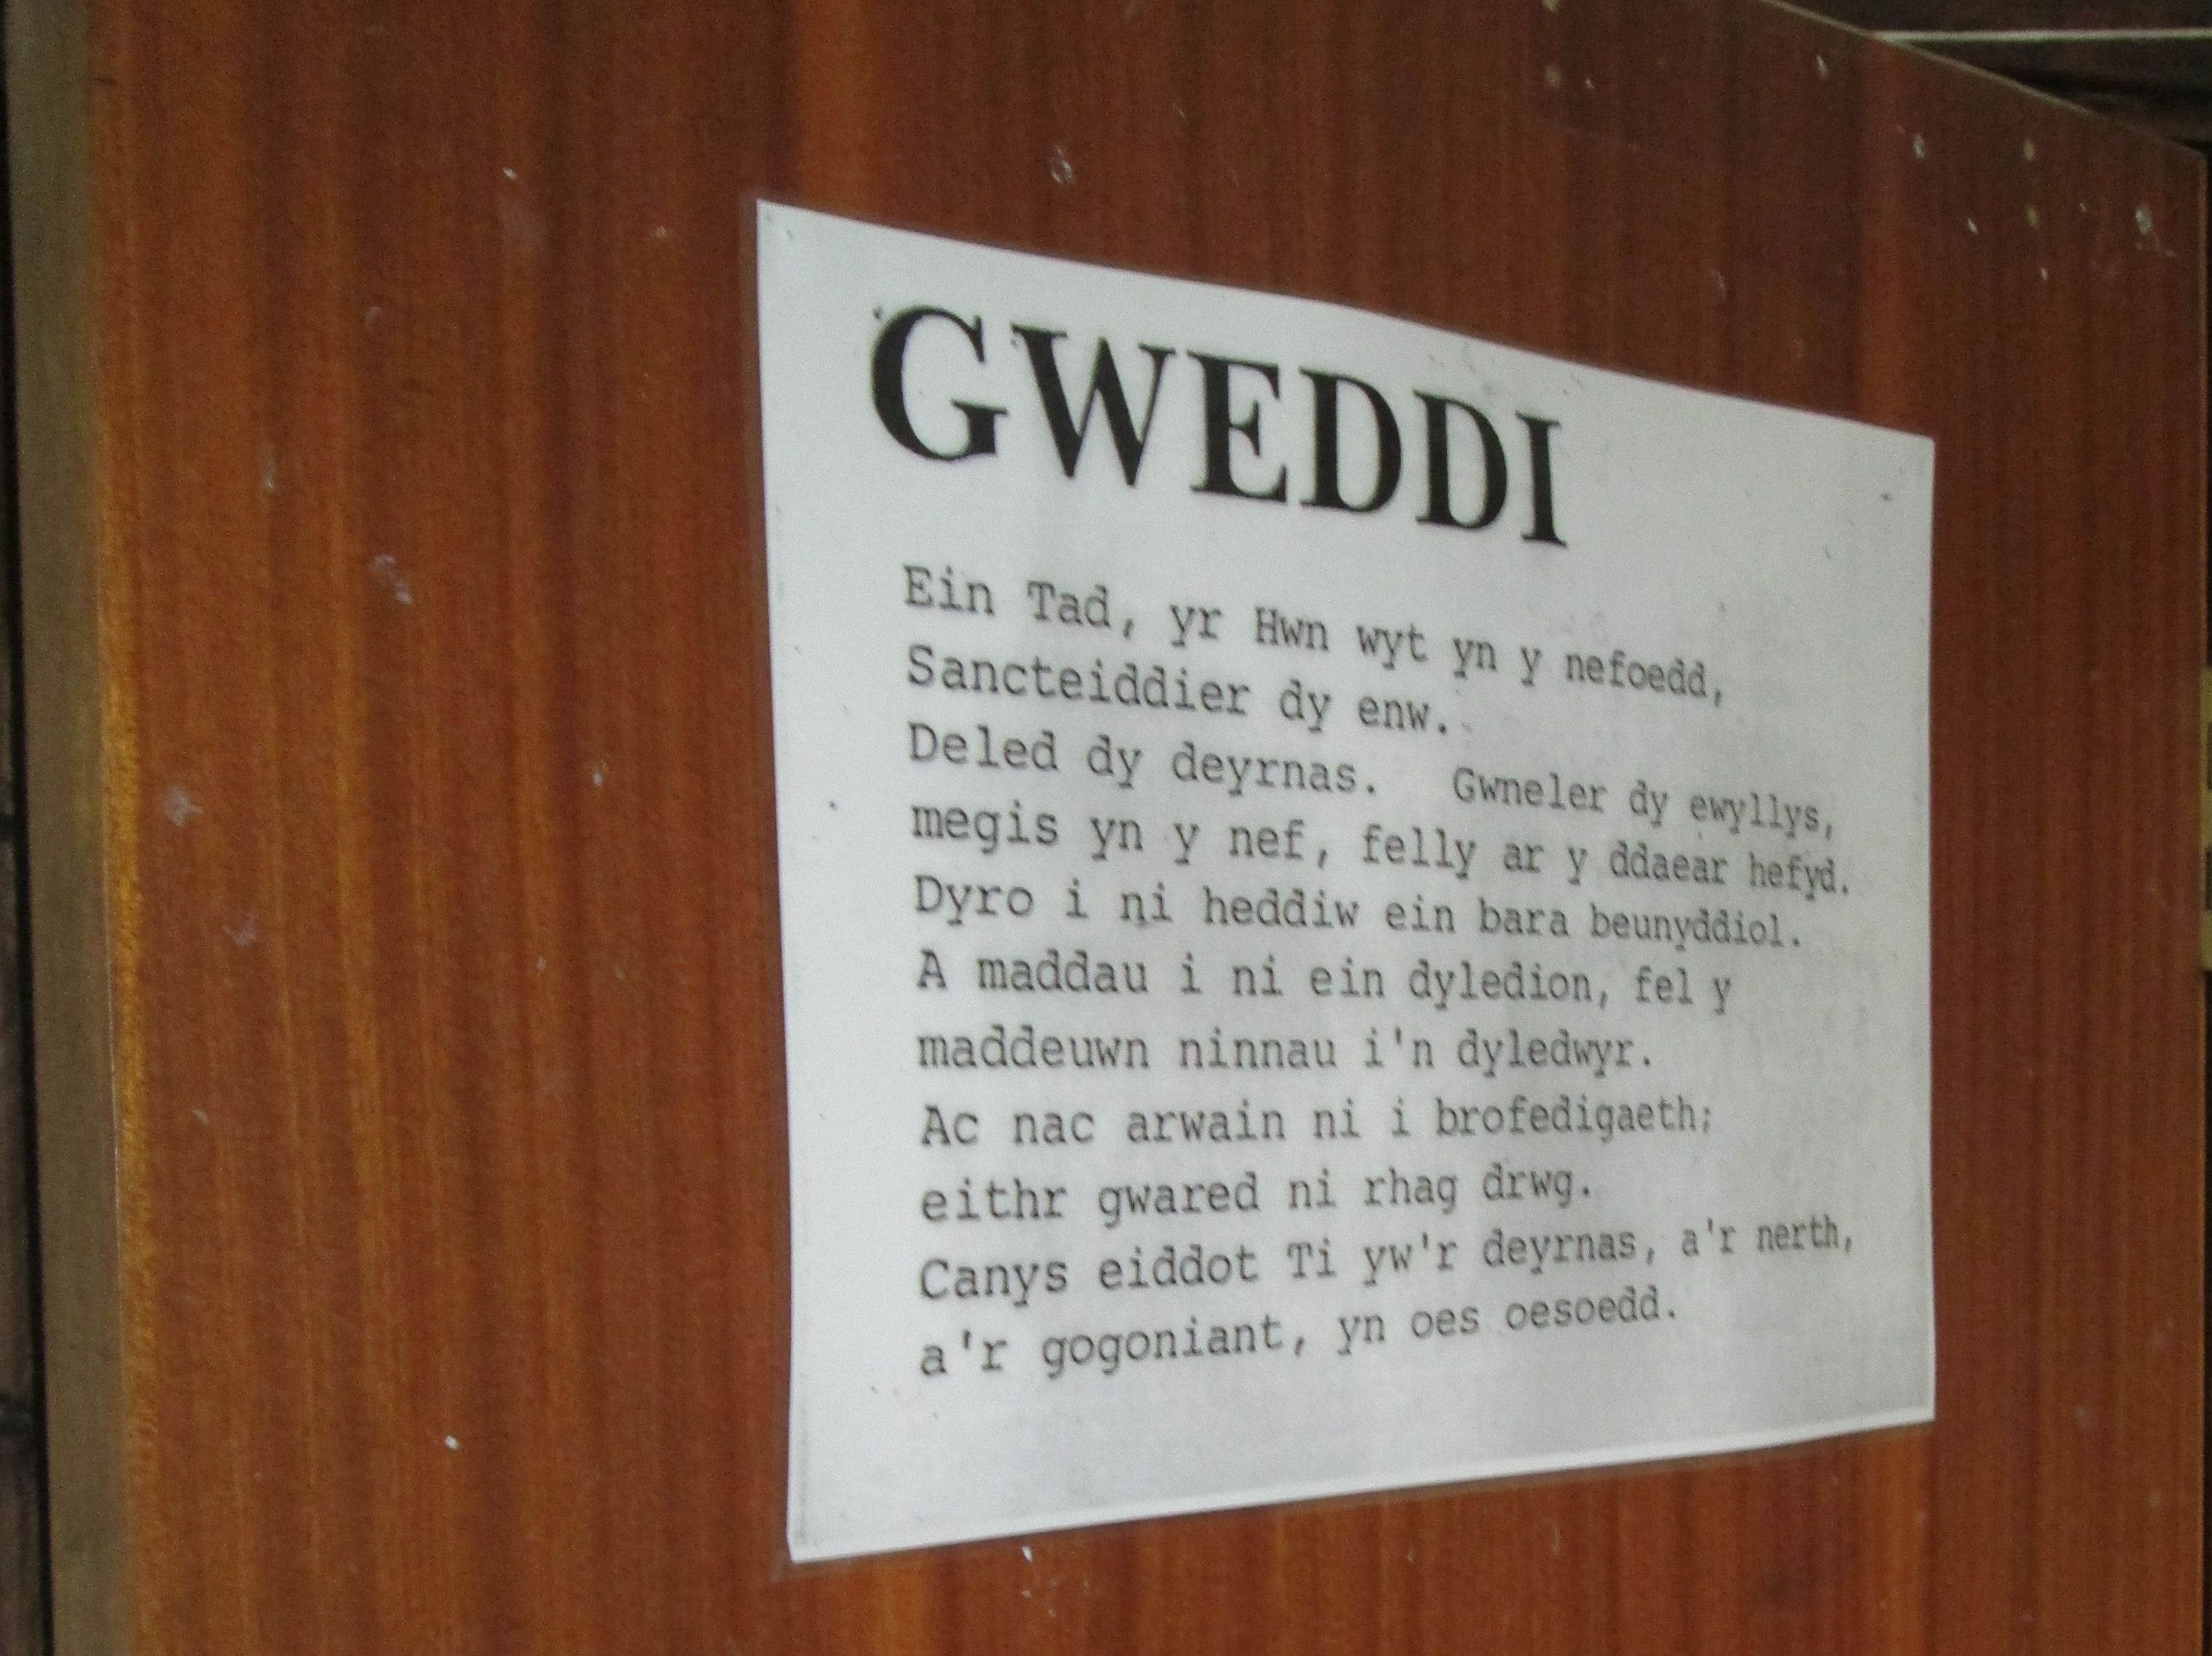 GWEDDI
Ein Tad, yr Hwn wyt yn y nefoedd,
Sancteiddier dy enw.
Deled dy deyrnas. Gwneler dy ewyllys,
megis yn y nef, felly ar y ddaear hefyd.
Dyro i ni heddiw ein bara beunyddiol.
A maddau i ni ein dyledion, fel y
maddeuwn ninnau i'n dyledwyr.
Ac nac arwain ni i brofedigaeth;
eithr gwared ni rhag drwg.
Canys eiddot Ti yw'r deyrnas, a'r nerth,
a'r gogoniant, yn oes oesoedd.